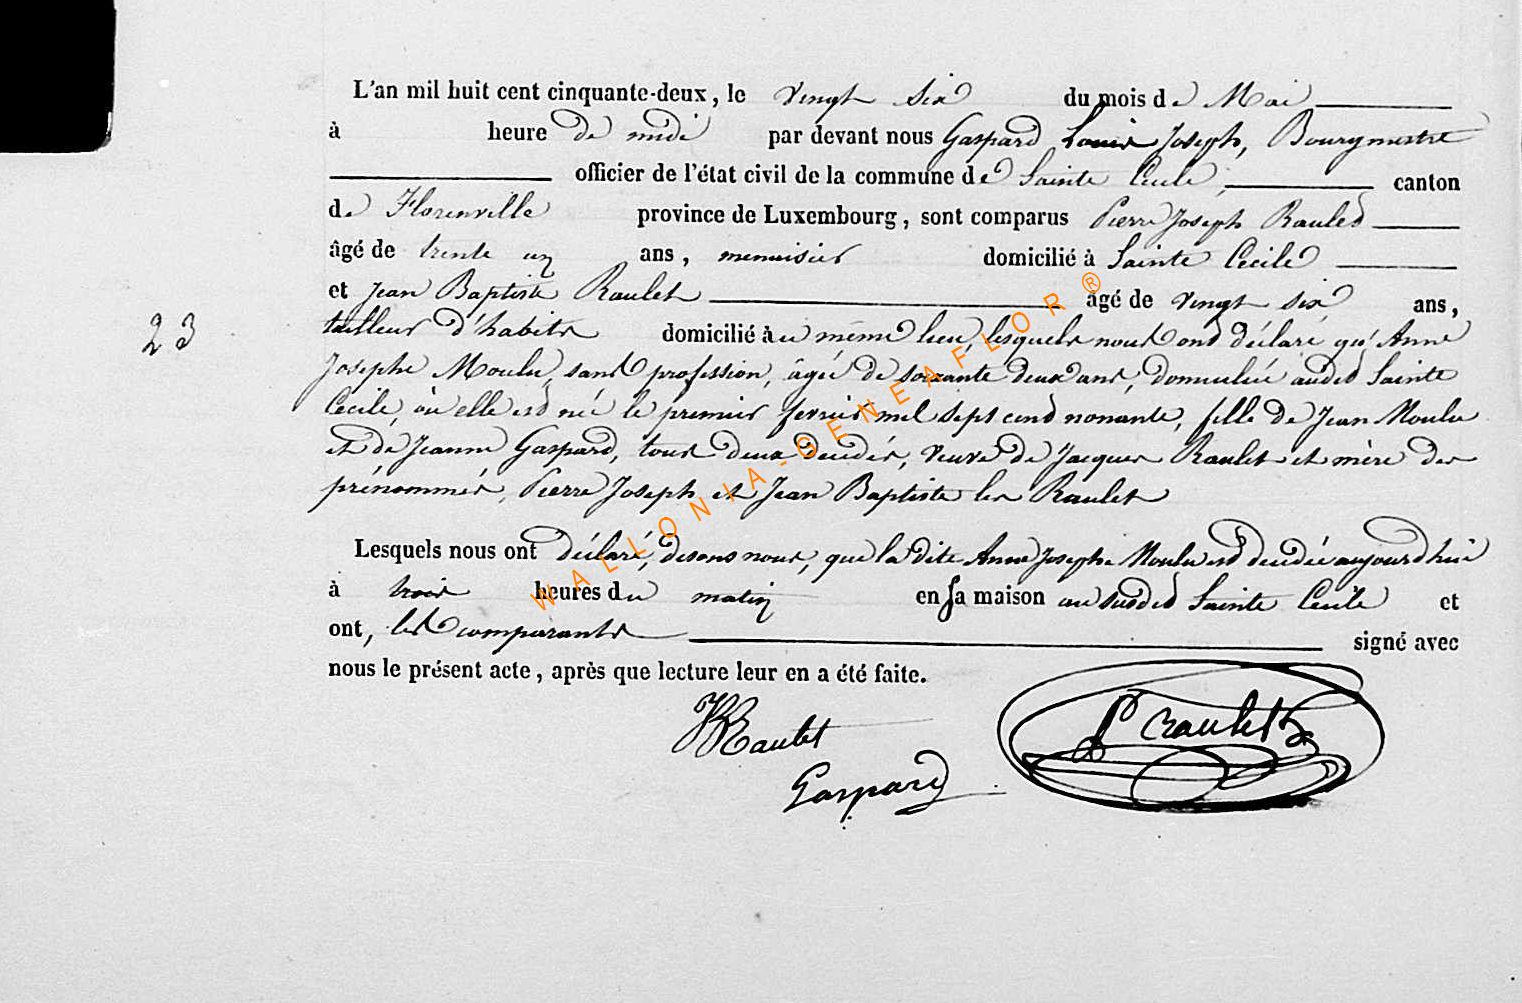 L'an mil huit cent cinquante-deux, le vingt six du mois de Mai
à heure de midi par devant nous Gaspard Louis Joseph, Bourgmestre
officier de l'état civil de la commune de Sainte Cecile canton
de Florenville province de Luxembourg, sont comparus Pierre Joseph Raulet
âgé de trente un ans, menuisier domicilié à Sainte Cecile
et Jean Baptiste Raulet âgé de vingt six ans,
23
tailleur d'habits domicilié à au même lieu, lesquels nous ont déclaré qu'Anne
Josephe Moulu, sans profession, âgée de soixante deux ans, domiciliée audit Sainte
Cecile, où elle est née le premier fevrier mil sept cent nonante, fille de Jean Moulu
et de Jeanne Gaspard, tous deux décédés, veuve de Jacques Raulet et mère des
prénommés, Pierre Joseph et Jean Baptiste les Raulet
Lesquels nous ont déclaré, disons nous, que la dite Anne Josephe Moulu est décédée aujourd'hui
à trois heures du matin en sa maison au susdit Sainte Cecile et
ont, les comparants signé avec
nous le présent acte, après que lecture leur en a été faite.
JBRaulet
P Jraulet
Gaspard
WALLONIA-GENEAFLOR®